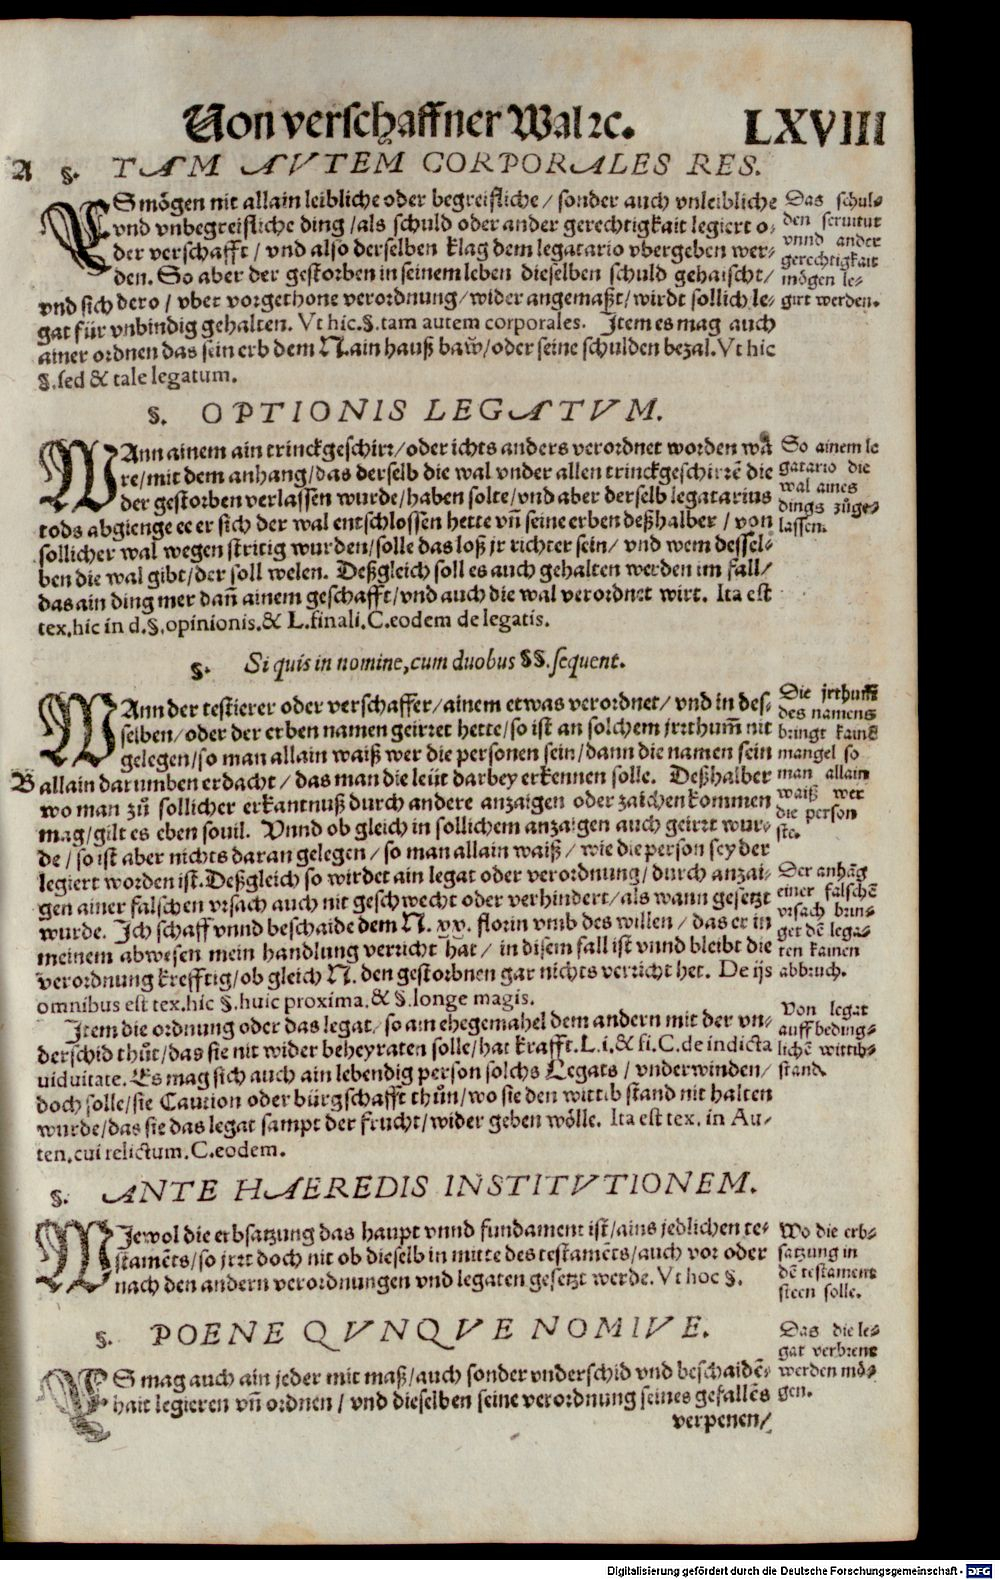 Von verschaffner Wal ꝛc. LXVIII
A §. TAM AVTEM CORPORALES RES.
ES mögen nit allain leibliche oder begreifliche / sonder auch vnleibliche
vnd vnbegreifliche ding / als schuld oder ander gerechtigkait legiert o-
der verschafft / vnd also derselben klag dem legatario vbergeben wer-
den. So aber der gestorben in seinem leben dieselben schuld gehaischt /
vnd sich dero / vber vorgethone verordnung / wider angemaßt / wirdt sollich le-
gat für vnbindig gehalten. Vt hic.§.tam autem corporales. Item es mag auch
ainer ordnen das sein erb dem N.ain hauß baw̃ / oder seine schulden bezal. Vt hic
§.sed & tale legatum.
Das schul-
den seruitut
vnnd ander
gerechtigkait
mögen le-
girt werden.
§. OPTIONIS LEGATVM.
WAnn ainem ain trinckgeschirr / oder ichts anders verordnet worden wä
re / mit dem anhang / das derselb die wal vnder allen trinckgeschirrẽ die
der gestorben verlassen wurde / haben solte / vnd aber derselb legatarius
tods abgienge ee er sich der wal entschlossen hette vñ seine erben deßhalber / von
sollicher wal wegen stritig wurden / solle das loß jr richter sein / vnd wem dessel-
ben die wal gibt / der soll welen. Deßgleich soll es auch gehalten werden im fall /
das ain ding mer dañ ainem geschafft / vnd auch die wal verordnet wirt. Ita est
tex.hic in d.§.opinionis.& L.finali.C.eodem de legatis.
So ainem le
gatario die
wal aines
dings zůge-
lassen.
§. Si quis in nomine, cum duobus §§.sequent.
WAnn der testierer oder verschaffer / ainem etwas verordnet / vnd in des-
selben / oder der erben namen geirret hette / so ist an solchem jrrthum̃ nit
gelegen / so man allain waiß wer die personen sein / dann die namen sein
B allain darumben erdacht / das man die leüt darbey erkennen solle. Deßhalber
wo man zů sollicher erkantnuß durch andere anzaigen oder zaichen kommen
mag / gilt es eben souil. Vnnd ob gleich in sollichem anzaigen auch geirrt wur-
de / so ist aber nichts daran gelegen / so man allain waiß / wie die person sey der
legiert worden ist. Deßgleich so wirdet ain legat oder verordnung / durch anzai-
gen ainer falschen vrsach auch nit geschwecht oder verhindert / als wann gesetzt
wurde. Ich schaff vnnd beschaide dem N. xx. florin vmb des willen / das er in
meinem abwesen mein handlung verricht hat / in disem fall ist vnnd bleibt die
verordnung krefftig / ob gleich N. den gestorbnen gar nichts verricht het. De ijs
omnibus est tex.hic §.huic proxima.& §.longe magis.
Item die ordnung oder das legat / so ain ehegemahel dem andern mit der vn-
derschid thůt / das sie nit wider beheyraten solle / hat krafft.L.i.& ii.C.de indicta
viduitate. Es mag sich auch ain lebendig person solchs Legats / vnderwinden /
doch solle / sie Caution oder bürgschafft thůn / wo sie den wittib stand nit halten
wurde / das sie das legat sampt der frucht / wider geben wölle. Ita est tex. in Au-
ten.cui relictum.C.eodem.
Die jrthum̃
des namens
bringt kainẽ
mangel so
man allain
waiß wer
die person
ste.
Der anhãg
einer falschẽ
vrsach brin-
get dẽ lega-
ten kainen
abbruch.
Von legat
auff beding-
lichẽ wittib-
stand.
§. ANTE HAEREDIS INSTITVTIONEM.
WIewol die erbsatzung das haupt vnnd fundament ist / ains jedlichen te-
stamẽts / so jrrt doch nit ob dieselb in mitte des testamẽts / auch vor oder
nach den andern verordnungen vnd legaten gesetzt werde. Vt hoc §.
Wo die erb-
satzung in
dẽ testament
steen solle.
§. POENE QVNQVE NOMIVE.
ES mag auch ain jeder mit maß / auch sonder vnderschid vnd beschaidẽ-
hait legieren vñ ordnen / vnd dieselben seine verordnung seines gefallẽs
verpenen /
Das die le-
gat verbrent
werden mö-
gen.
Digitalisierung gefördert durch die Deutsche Forschungsgemeinschaft - DFG